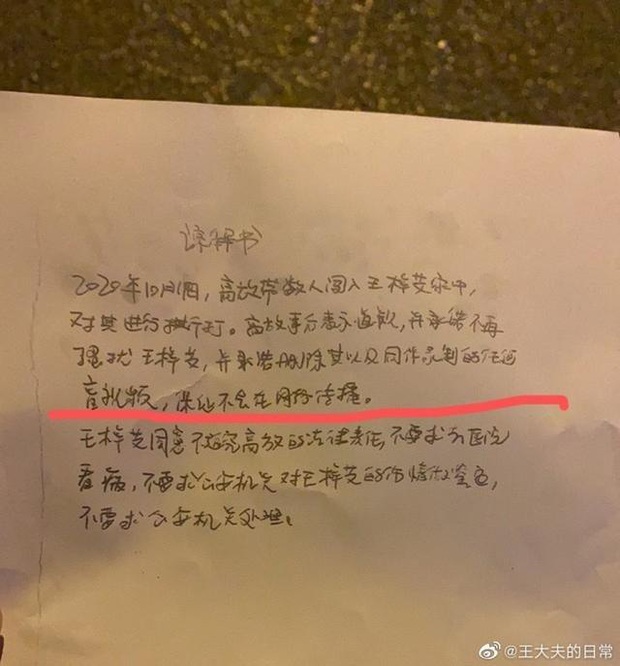 谅解书
2020年10月1日,高放带数人闯入王梓芠家中,
对其进行殴打。高放事后表示道歉,并承诺不再
骚扰王梓芠,并承诺删除其以及同伙录制的任何
音视频,保证不会在网络传播。
王梓芠同意不追究高放的法律责任,不要求去医院
看病,不要求公安机关对王梓芠的伤情做鉴定,
不要求公安机关处理。
@王大夫的日常